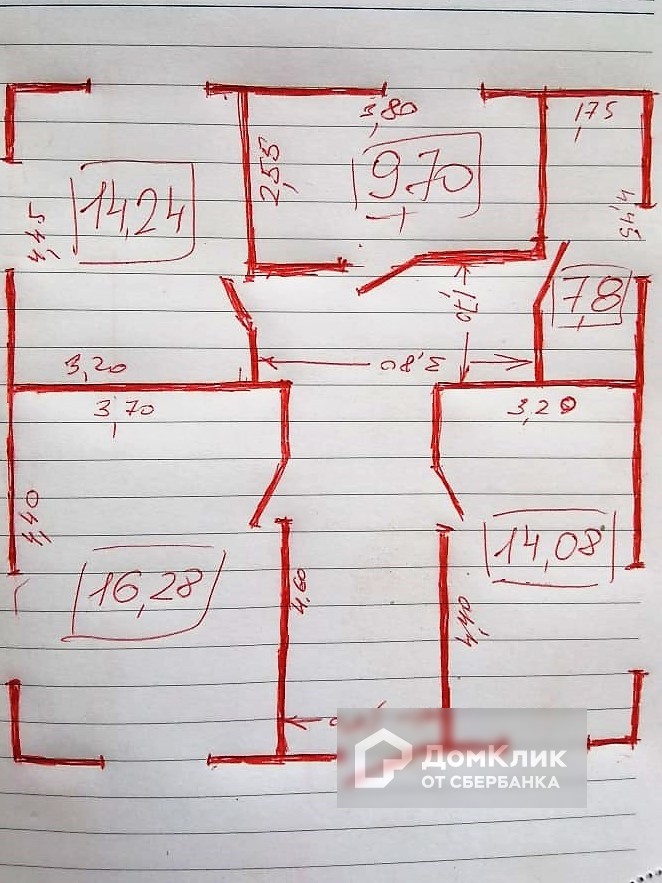 3,80
175
2,55
14,24
9,70
4,45
4,45
1,70
7,8
3,20
3,80
3,70
3,20
4,40
14,08
16,28
4,60
4,40
ДОМКЛИК
ОТ СБЕРБАНКА